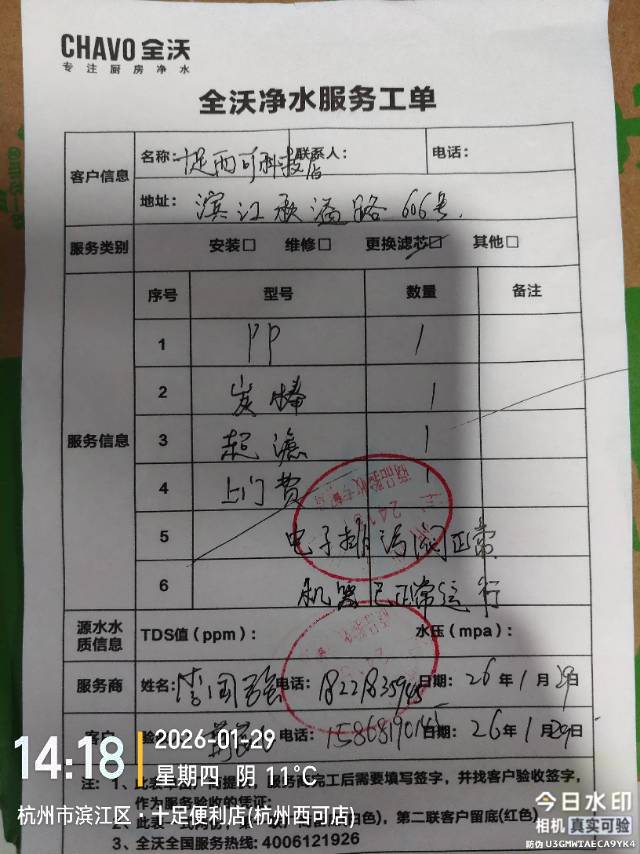 CHAVO 全沃
专注厨房净水
全沃净水服务工单
客户信息
名称: 西可科技店 联系人: 电话:
地址: 滨江 路 606号.
服务类别 安装☐ 维修☐ 更换滤芯☑ 其他☐
服务信息
序号 型号 数量 备注
1 PP 1
2 炭棒 1
3 超滤 1
4 上门费 1
5 电子排污阀正常
6 机器已正常运行
源水水质信息 TDS值(ppm): 水压(mpa):
服务商 姓名: 李国强 电话: 日期: 26年1月29日
客户 电话: 日期: 26年1月29日
14:18
2026-01-29
星期四 阴 11℃
杭州市滨江区·十足便利店(杭州西可店)
注: 1、此 服务商完工后需要填写签字,并找客户验收签字,
作为服务验收的凭证;
2、此表一式两份, 色),第二联客户留底(红色)
3、全沃全国服务热线: 4006121926
今日水印
相机 真实可验
防伪 U3GMWTAECA9YK4